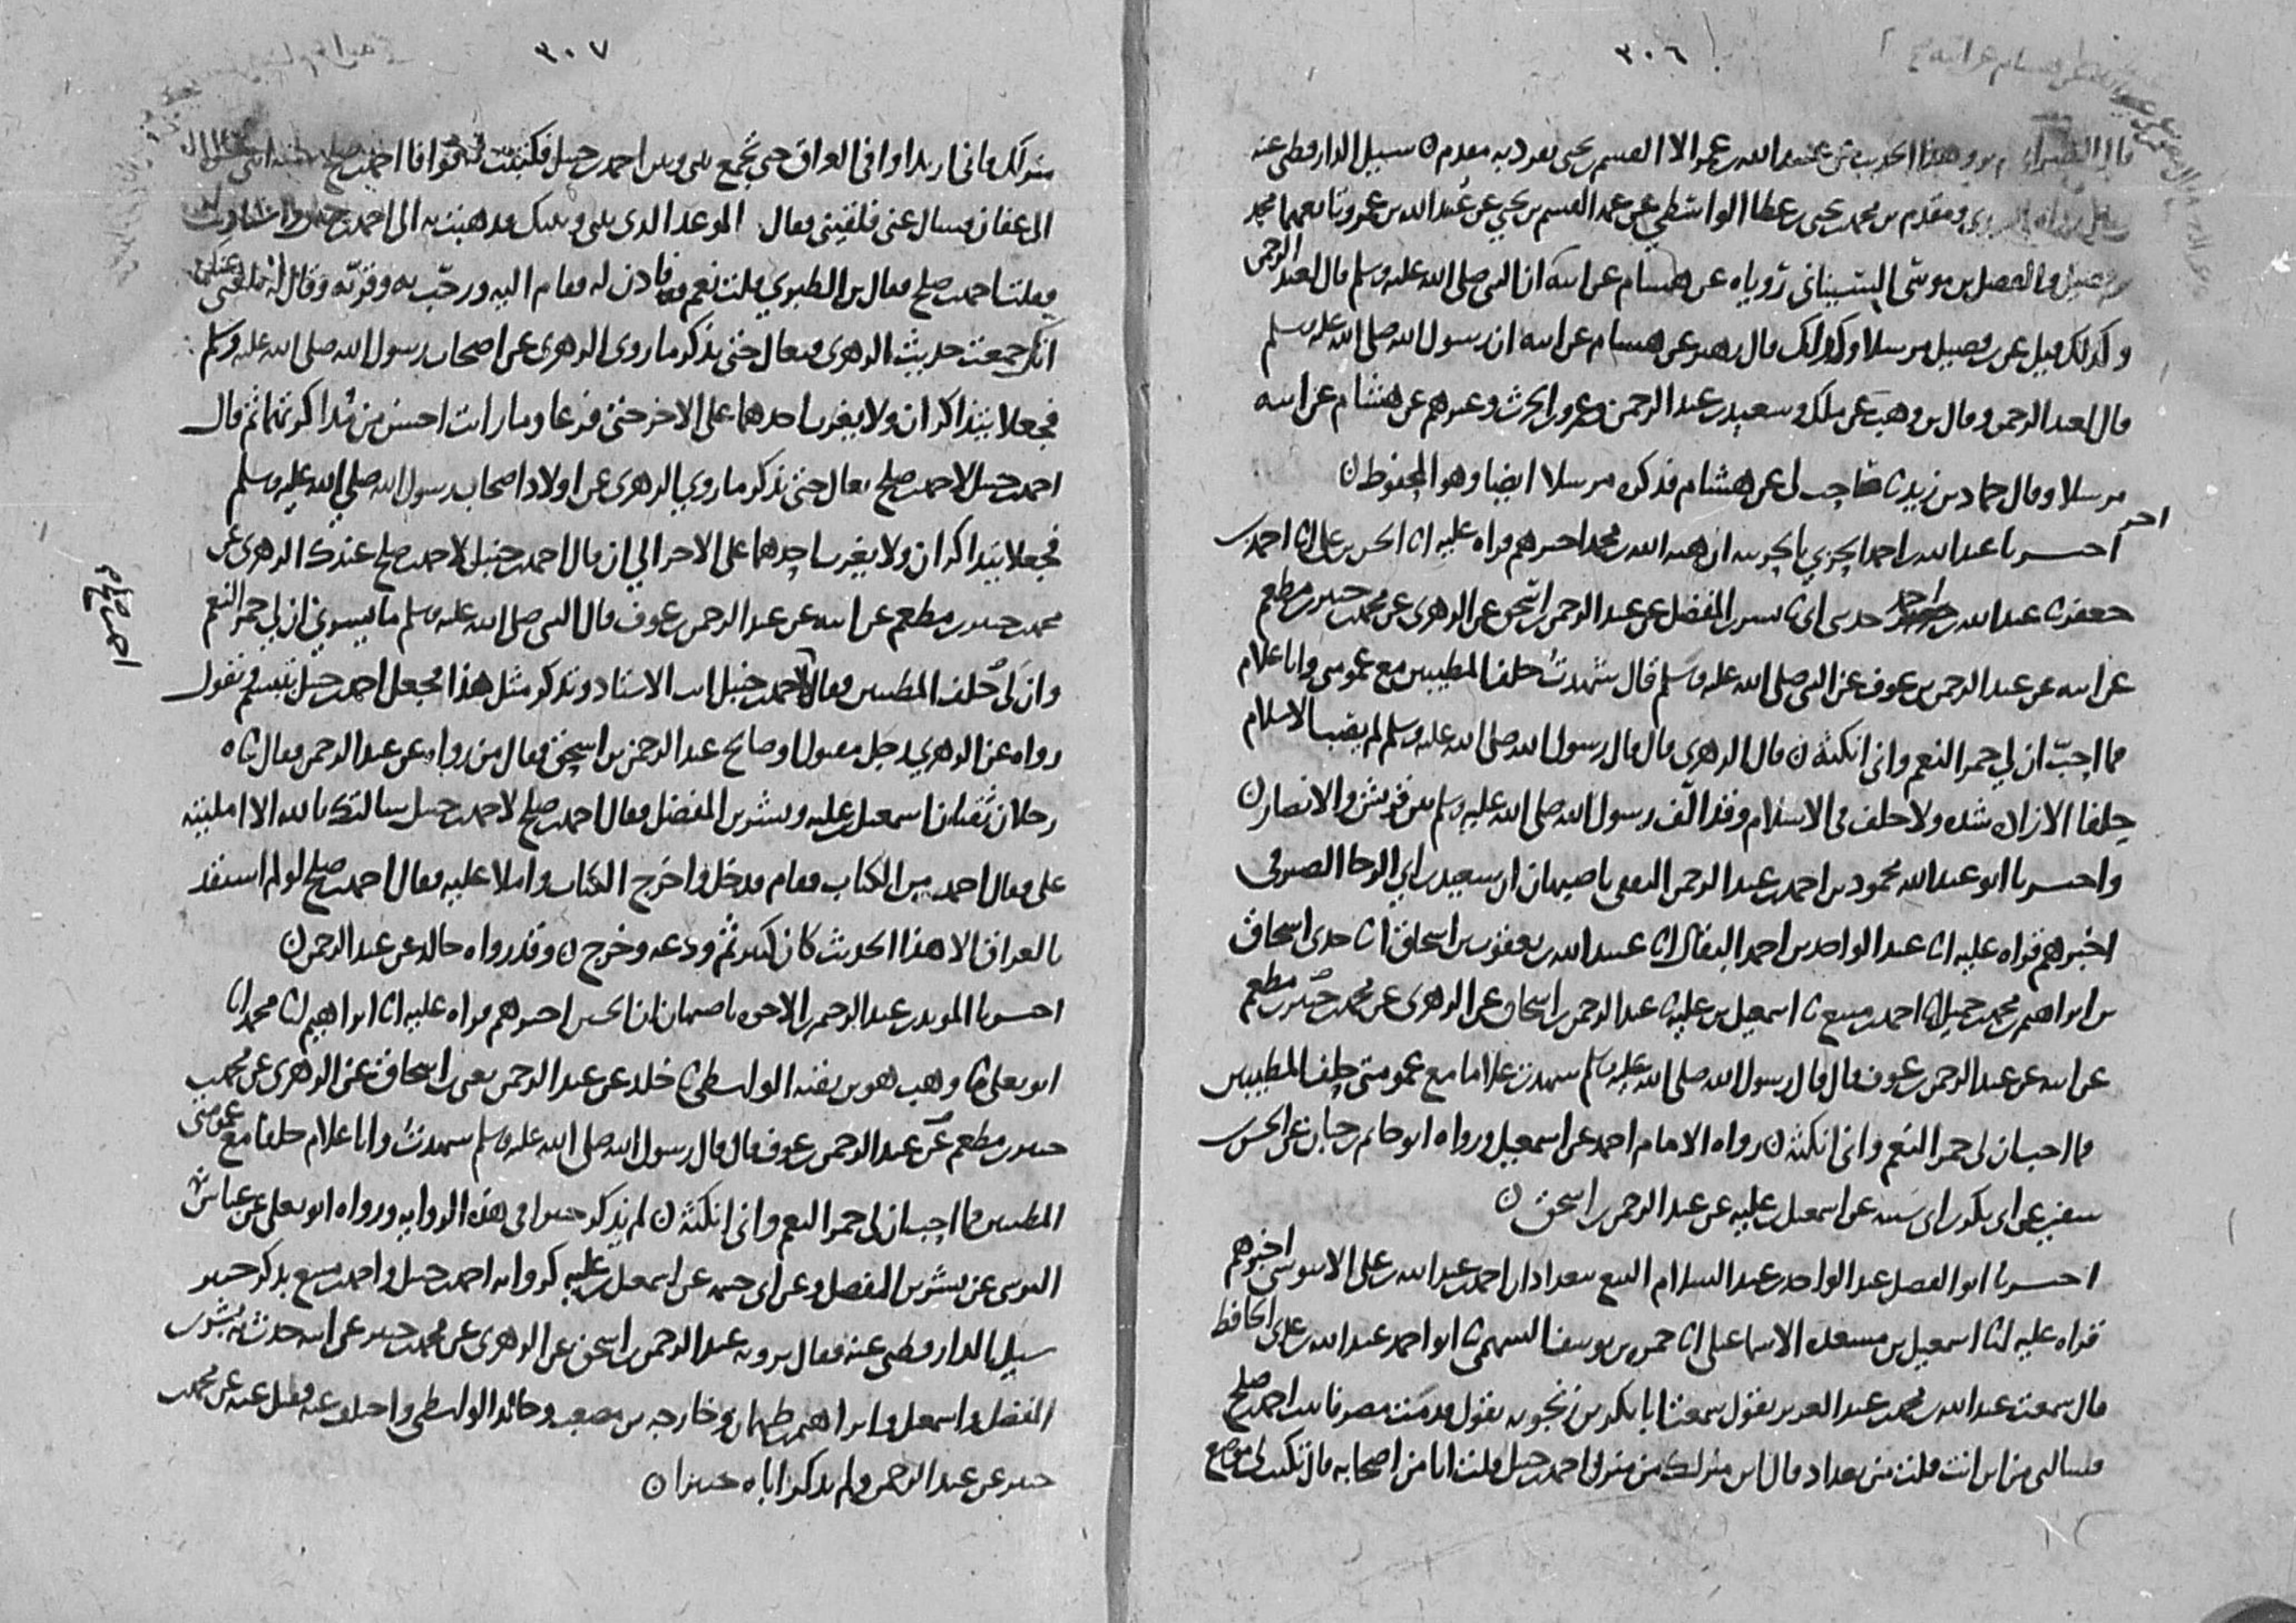 ٣٠٦
قال الطبراني لم يرو هذا الحديث عن عبيد الله بن عمر الا القسم بن يحيى تفرد به مقدم ن سئل الدارقطني عنه
ومقدم بن محمد بن يحيى بن عطا الواسطي عن عمه القسم بن يحيى عن عبيد الله بن عمر وتابعهما محمد
بن فضيل والفضل بن موسى السيناني روياه عن هشام عن ابيه ان النبي صلى الله عليه وسلم قال لعبد الرحمن
وكذلك قيل عن بن فضيل مرسلا وكذلك قال زهير عن هشام عن ابيه ان رسول الله صلى الله عليه وسلم
قال لعبد الرحمن وقال بن وهب عن ملك وسعيد بن عبد الرحمن وعمرو بن الحرث وغيرهم عن هشام عن ابيه
مرسلا وقال حماد بن زيد ثنا صاحب لي عن هشام فذكره مرسلا ايضا وهو المحفوظ ن
اخر
اخبرنا عبد الله بن احمد الحربي بالحربية ان هبة الله بن محمد اخبرهم قراه عليه انا الحسن بن علي انا احمد بن
جعفر ثنا عبد الله بن احمد حدثني ابي ثنا بشر بن المفضل عن عبد الرحمن بن اسحق عن الزهري عن محمد بن جبير بن مطعم
عن ابيه عن عبد الرحمن بن عوف عن النبي صلى الله عليه وسلم قال شهدت حلف المطيبين مع عمومتي وانا غلام
فما احب ان لي حمر النعم واني انكثه ن قال الزهري قال قال رسول الله صلى الله عليه وسلم لم يصب الاسلام
حلفا الا زاده شده ولا حلف في الاسلام وقد الف رسول الله صلى الله عليه وسلم بين قريش والانصار ن
واخبرنا ابو عبد الله محمود بن احمد بن عبد الرحمن الثقفي باصبهان ان سعيد بن ابي الرجا الصيرفي
اخبرهم قراه عليه انا عبد الواحد بن احمد البقال انا عبيد الله بن يعقوب بن اسحاق انا جدي اسحاق
بن ابراهيم بن محمد بن جميل انا احمد بن منيع ثنا اسمعيل بن عليه ثنا عبد الرحمن بن اسحاق عن الزهري عن محمد بن جبير بن مطعم
عن ابيه عن عبد الرحمن بن عوف قال قال رسول الله صلى الله عليه وسلم شهدت غلاما مع عمومتي حلف المطيبين
فما احب ان لي حمر النعم واني انكثه ن رواه الامام احمد عن اسمعيل ورواه ابو حاتم بن حبان عن الحسن بن
سفين عن ابي بكر بن ابي شيبه عن اسمعيل بن عليه عن عبد الرحمن بن اسحق ن
اخبرنا ابو الفضل عبد الواحد بن عبد السلام البيع ببغداد ان احمد بن عبد الله بن علي الابنوسي اخبرهم
قراه عليه انا اسمعيل بن مسعده الاسماعيلي انا حمزه بن يوسف السهمي ثنا ابو احمد عبد الله بن عدي الحافظ
قال سمعت عبد الله بن محمد بن عبد العزيز يقول سمعت ابا بكر بن زنجويه يقول قدمت مصر فاتيت احمد بن صلح
فسالني من اين انت قلت من بغداد قال اين منزلك من منزل احمد بن حنبل قلت انا من اصحابه قال تكتب لي موضع
٣٠٧
منزلك فاني اريد اوافي العراق حتى تجمع بيني وبين احمد بن حنبل فكتبت له فوافا احمد بن صلح
الى عفان فسال عني فلقيني فقال الموعد الذي بيني وبينك فذهبت به الى احمد بن حنبل واستاذنت له
فقلت احمد بن صلح فقال بن الطبري قلت نعم فاذن له فقام اليه ورحب به وقربه وقال له بلغني
انك جمعت حديث الزهري فتعال حتى نذكر ما روى الزهري عن اصحاب رسول الله صلى الله عليه وسلم
فجعلا يتذاكران ولا يغرب احدهما على الاخر حتى فرغا وما رايت احسن من مذاكرتهما ثم قال
احمد بن حنبل لاحمد بن صلح تعال حتى نذكر ما روى الزهري عن اولاد اصحاب رسول الله صلى الله عليه وسلم
فجعلا يتذاكران ولا يغرب احدهما على الاخر الى ان قال احمد بن حنبل لاحمد بن صلح عندك الزهري عن
محمد بن جبير بن مطعم عن ابيه عن عبد الرحمن بن عوف قال النبي صلى الله عليه وسلم ما يسرني ان لي حمر النعم
وان لي حلف المطيبين فقال لاحمد بن حنبل انت الاستاد وتذكر مثل هذا فجعل احمد بن حنبل يتبسم ويقول
رواه عن الزهري رجل مقبول او صالح عبد الرحمن بن اسحق فقال من رواه عن عبد الرحمن فقال ثناه
رجلان ثقتان اسمعيل بن عليه وبشر بن المفضل فقال احمد بن صلح لاحمد بن حنبل سالتك بالله الا امليته
علي فقال احمد من الكتاب فقام فدخل واخرج الكتاب واملا عليه فقال احمد بن صلح لو لم استفد
بالعراق الا هذا الحديث كان كثير ثم ودعه وخرج ن وقد رواه خالد عن عبد الرحمن ن
اخبرنا المويد بن عبد الرحيم بن الاخوه باصبهان ان الحسين اخبرهم قراه عليه انا ابراهيم انا محمد انا
ابو يعلى ثنا وهب هو بن بقيه الواسطي ثنا خلد عن عبد الرحمن يعني بن اسحاق عن الزهري عن محمد بن
جبير بن مطعم عن عبد الرحمن بن عوف قال قال رسول الله صلى الله عليه وسلم شهدت وانا غلام حلفا مع عمومتي
المطيبين فما احب ان لي حمر النعم واني انكثه ن لم يذكر جبيرا في هذه الروايه ورواه ابو يعلى عن عباس
النرسي عن بشر بن المفضل وعن ابي خيثمه عن اسمعيل بن عليه كروايه احمد بن حنبل واحمد بن منيع بذكر جبير
سيل الدارقطني عنه فقال يرويه عبد الرحمن بن اسحق عن الزهري عن محمد بن جبير عن ابيه حدث به بشر بن
المفضل واسمعيل وابراهيم بن طهمان وخارجه بن مصعب وخالد الواسطي واختلف عنه فقيل عنه عن محمد بن
جبير عن عبد الرحمن ولم يذكر اباه جبيرا ن
احمد بن صالح